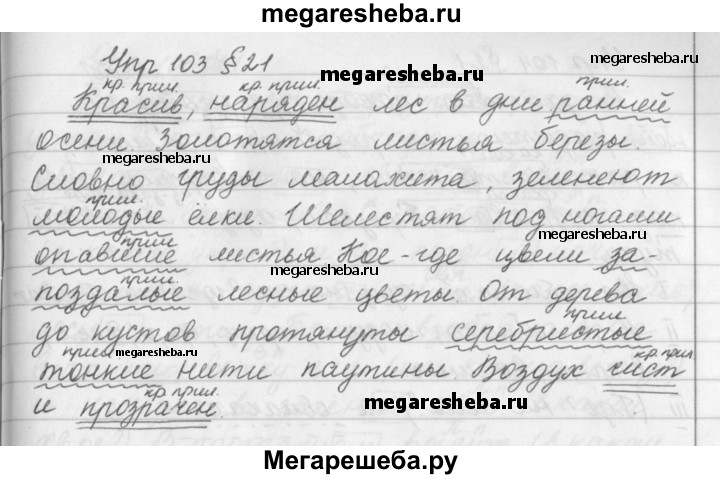 megaresheba.ru
Упр 103 § 21
кр. прил. кр. прил. прил.
megaresheba.ru
megaresheba.ru
Красив, наряден лес в дни ранней
осени. Золотятся листья березы.
megaresheba.ru
Словно груды малахита, зеленеют
прил.
молодые ёлки. Шелестят под ногами
прил. megaresheba.ru
опавшие листья. Кое-где цвели за-
прил. megaresheba.ru
поздалые лесные цветы. От дерева
до кустов протянуты серебристые
прил. прил. кр. прил.
megaresheba.ru
тонкие нити паутины. Воздух чист
кр. прил.
и прозрачен.
megaresheba.ru
megaresheba.ru
Мегарешеба.ру